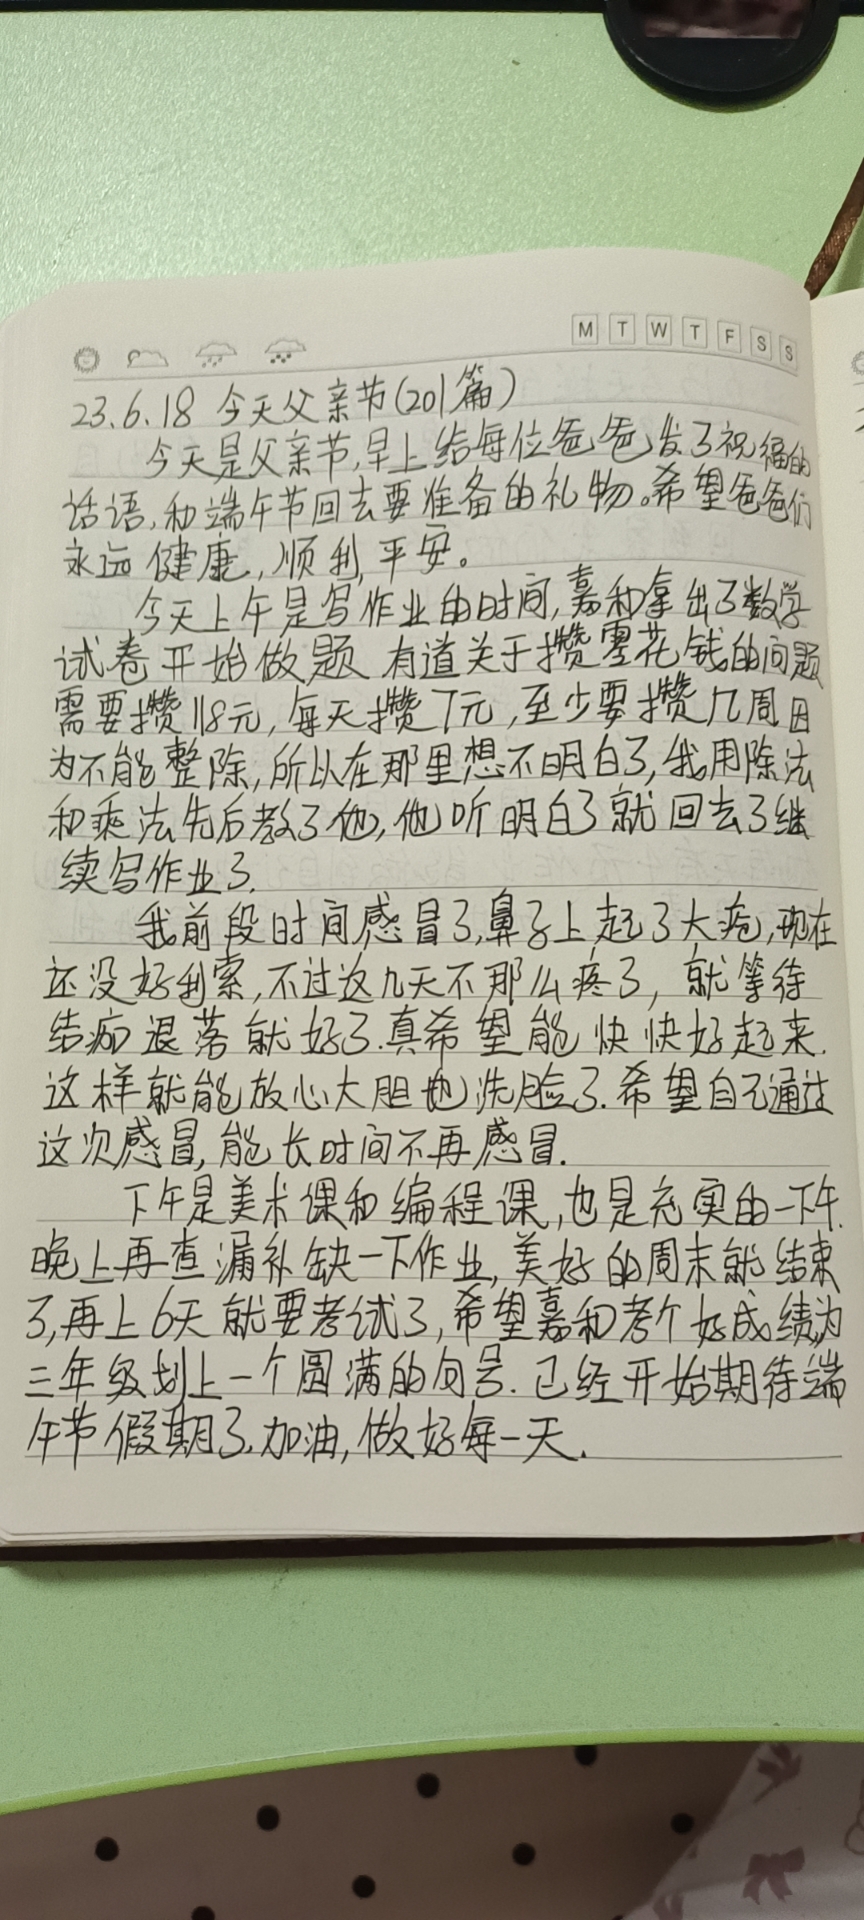 M T W T F S S
23.6.18 今天父亲节(201篇)
今天是父亲节,早上给每位爸爸发了祝福的
话语,和端午节回去要准备的礼物。希望爸爸们
永远健康,顺利,平安。
今天上午是写作业的时间,嘉和拿出了数学
试卷开始做题 有道关于攒零花钱的问题
需要攒118元,每天攒7元,至少要攒几周因
为不能整除,所以在那里想不明白了,我用除法
和乘法先后教了他,他听明白了就回去了继
续写作业了.
我前段时间感冒了,鼻子上起了大疮,现在
还没好利索,不过这几天不那么疼了,就等待
结痂退落就好了.真希望能快快好起来.
这样就能放心大胆地洗脸了.希望自己通过
这次感冒,能长时间不再感冒.
下午是美术课和编程课,也是充实的一下午.
晚上再查漏补缺一下作业,美好的周末就结束
了,再上6天就要考试了,希望嘉和考个好成绩,为
三年级划上一个圆满的句号.已经开始期待端
午节假期了.加油,做好每一天.